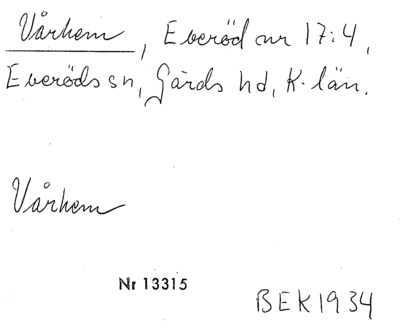 Vårhem, Everöd nr 17:4,
Everöds sn, Gärds hd, K-län.
Vårhem
Nr 13315
BEK1934